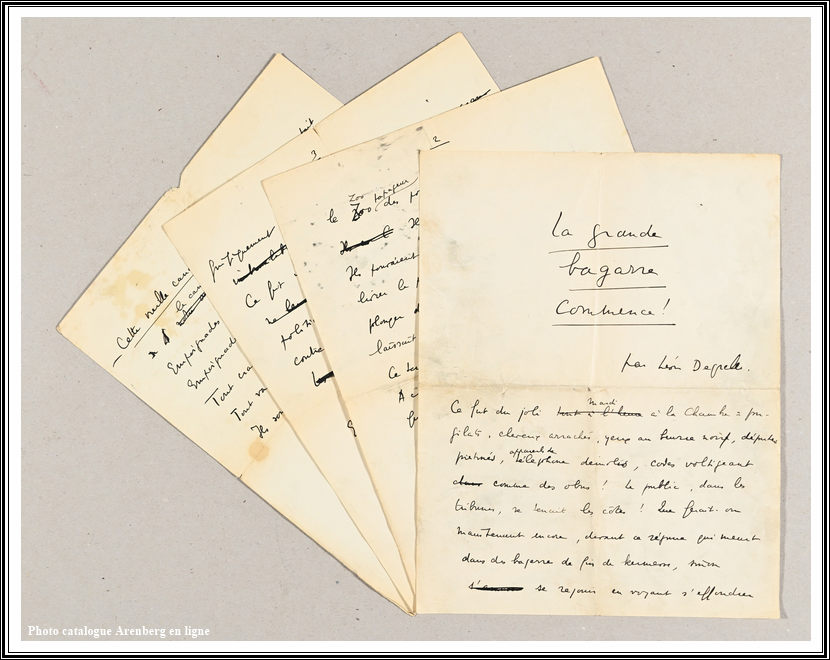 La grande
bagarre
commence!
par Léon Degrelle.
Ce fut du joli tout à l'heure mardi à la Chambre = pu-
gilats, cheveux arrachés, yeux au beurre noir, députés
piétinés, appareils de téléphone démolis, codes voltigeant
comme des obus ! Le public, dans les
tribunes, se tenait les côtes ! Que ferait-on
maintenant encore, devant ce régime qui meurt
dans des bagarres de fin de kermesse, sinon
se réjouir en voyant s'effondrer
2
Zoo tapageur
le Zoo des
Ils pouvaient
livrer le
plonger
laissait
Ce
3
frénétiquement
Ce fut
contre
tait
- Cette vieille
Empoignades
Empoignad
Tout
Tout va
Ils
Photo catalogue Arenberg en ligne